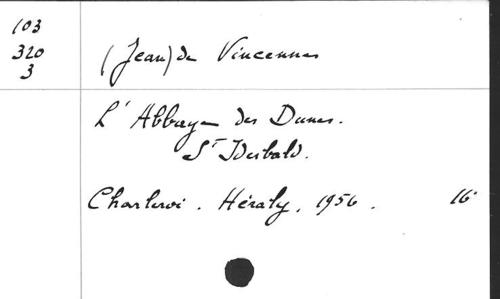 103
320
3
(Jean) de Vincennes
L'Abbaye des Dunes.
St Idesbald.
Charleroi. Héraly, 1956. 16°